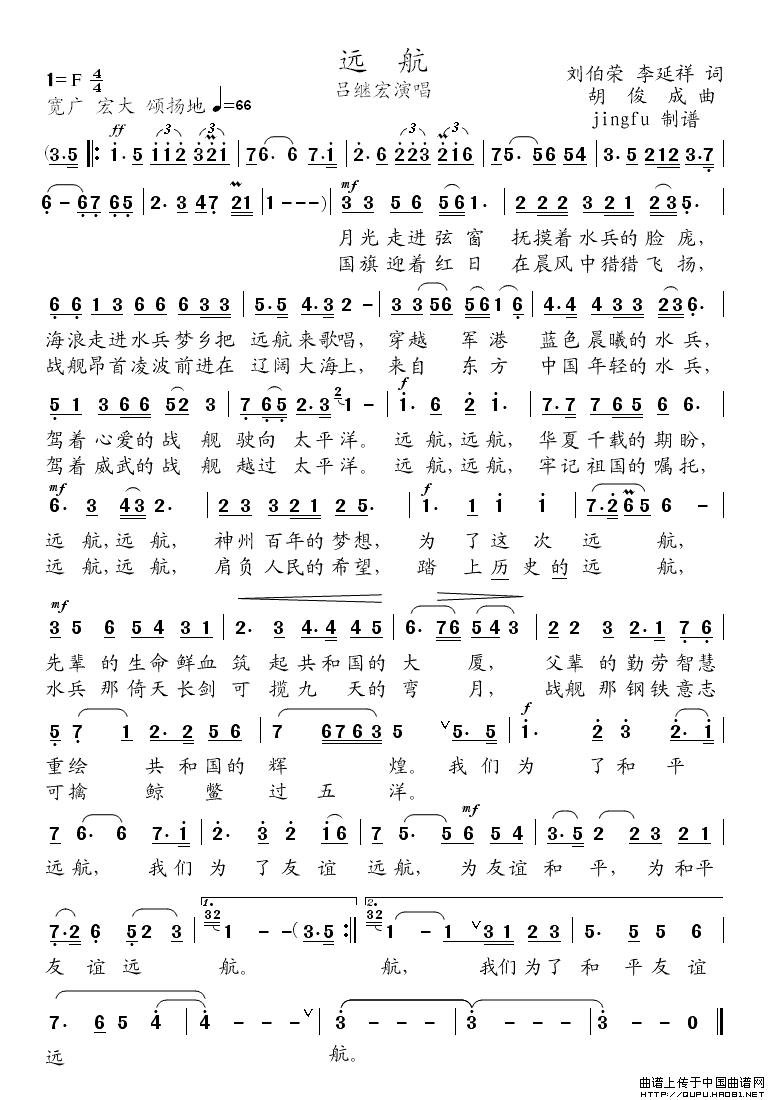 远 航
吕继宏演唱
1= F 4/4
宽广 宏大 颂扬地 ♩=66
刘伯荣 李延祥 词
胡 俊 成 曲
jingfu 制谱
月光 走进 弦 窗 抚摸着 水兵的 脸 庞,
国旗 迎着 红 日 在晨风 中猎猎 飞 扬,
海浪 走进 水兵 梦乡把 远航 来歌唱, 穿越 军港 蓝色 晨曦的 水兵,
战舰 昂首 凌波 前进在 辽阔 大海上, 来自 东方 中国 年轻的 水兵,
驾着 心爱的 战 舰 驶向 太平洋。 远航,远航, 华夏 千载的 期盼,
驾着 威武的 战 舰 越过 太平洋。 远航,远航, 牢记 祖国的 嘱托,
远 航,远 航, 神州 百年的 梦想, 为 了这 次 远 航,
远 航,远 航, 肩负 人民的 希望, 踏 上历 史的 远 航,
先辈 的 生命 鲜血 筑 起 共和 国的 大 厦, 父辈 的 勤劳 智慧
水兵 那 倚天 长剑 可 揽 九 天的 弯 月, 战舰 那 钢铁 意志
重绘 共 和国的 辉 煌。 我们 为 了 和 平
可擒 鲸 鳖 过 五 洋。
远航, 我们 为 了 友谊 远航, 为 友谊 和 平, 为 和平
友 谊 远 航。 航, 我们 为了 和 平 友谊
远 航。
曲谱上传于中国曲谱网
HTTP://QUPU.HAO81.NET